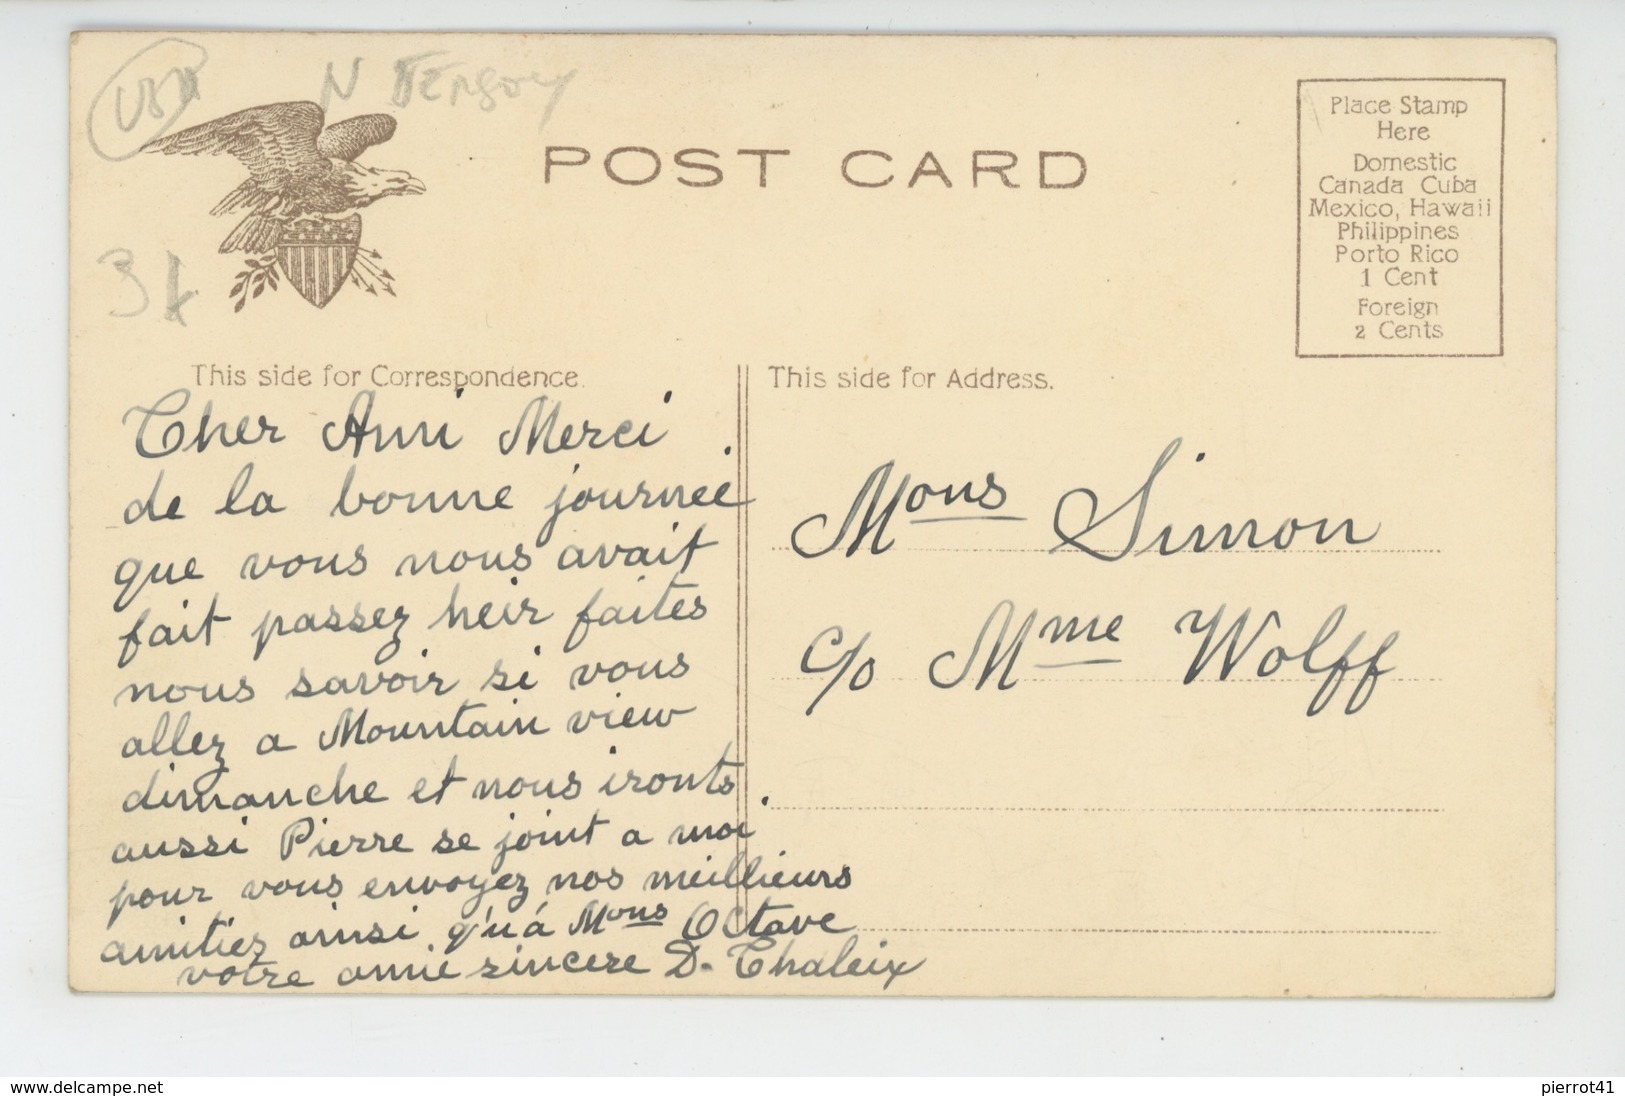 USA
N JERSEY
POST CARD
Place Stamp
Here
Domestic
Canada Cuba
Mexico, Hawaii
Philippines
Porto Rico
1 Cent
Foreign
2 Cents
3
This side for Correspondence.
Cher Ami Merci
de la bonne journeé
que vous nous avait
fait passez heir faites
nous savoir si vous
allez a Mountain view
dimanche et nous ironts.
aussi Pierre se joint a moi
pour vous envoyez nos meillieurs
amitiez ainsi qu'á Mons Octave
votre amie sincere D. Chaleix
This side for Address.
Mons Simon
c/o Mme Wolff
www.delcampe.net
pierrot41